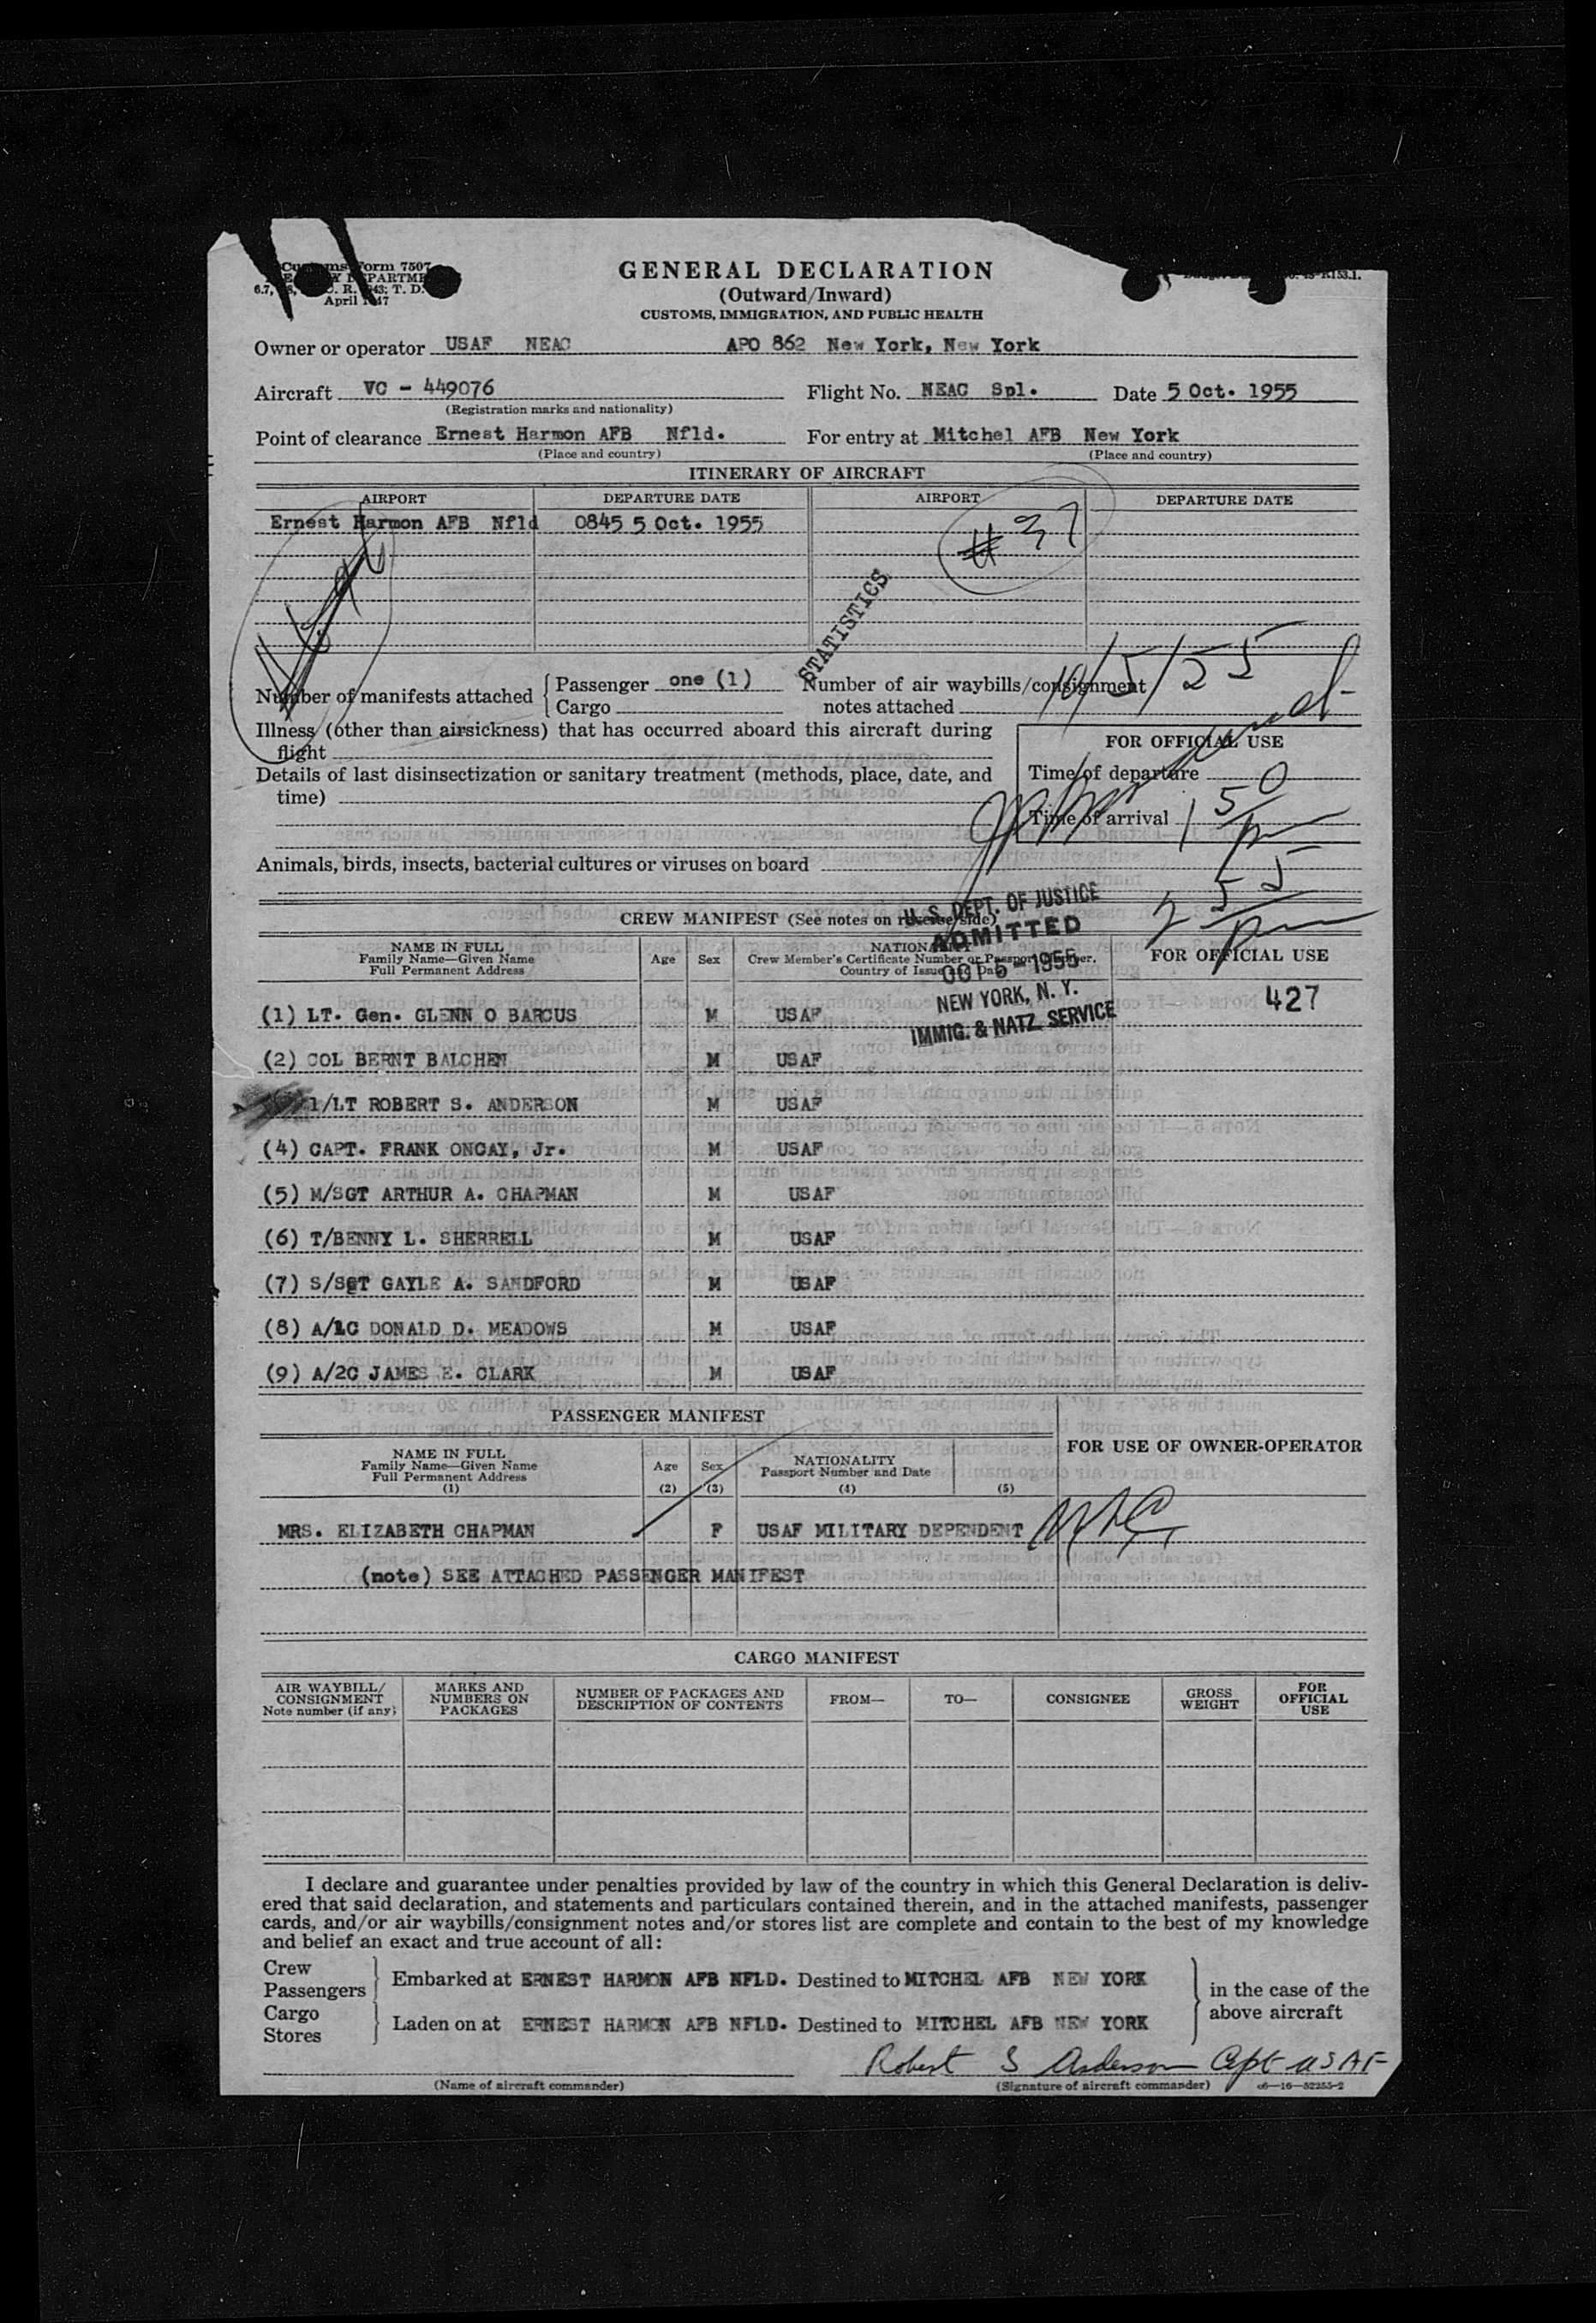 Customs Form 7507
April 1947
GENERAL DECLARATION
(Outward/Inward)
CUSTOMS, IMMIGRATION, AND PUBLIC HEALTH
Owner or operator USAF NEAC APO 862 New York, New York
Aircraft VC - 449076 Flight No. NEAC Spl. Date 5 Oct. 1955
(Registration marks and nationality)
Point of clearance Ernest Harmon AFB Nfld. For entry at Mitchel AFB New York
(Place and country) (Place and country)
ITINERARY OF AIRCRAFT
AIRPORT DEPARTURE DATE AIRPORT DEPARTURE DATE
Ernest Harmon AFB Nfld 0845 5 Oct. 1955
# 37
STATISTICS
Number of manifests attached { Passenger one (1) Number of air waybills/consignment
Cargo notes attached
Illness (other than airsickness) that has occurred aboard this aircraft during
flight
FOR OFFICIAL USE
Details of last disinsectization or sanitary treatment (methods, place, date, and
time)
Time of departure
Time of arrival 1 50 pm
Animals, birds, insects, bacterial cultures or viruses on board
2 55 pm
CREW MANIFEST (See notes on reverse side)
U. S. DEPT. OF JUSTICE
ADMITTED
OCT 5 - 1955
NEW YORK, N. Y.
IMMIG. & NATZ. SERVICE
NAME IN FULL
Family Name—Given Name
Full Permanent Address
Age Sex
NATIONALITY
Crew Member's Certificate Number or Passport Number,
Country of Issue and Date
FOR OFFICIAL USE
427
(1) LT. Gen. GLENN O BARCUS M USAF
(2) COL BERNT BALCHEN M USAF
1/LT ROBERT S. ANDERSON M USAF
(4) CAPT. FRANK ONGAY, Jr. M USAF
(5) M/SGT ARTHUR A. CHAPMAN M USAF
(6) T/BENNY L. SHERRELL M USAF
(7) S/SGT GAYLE A. SANDFORD M USAF
(8) A/1C DONALD D. MEADOWS M USAF
(9) A/2C JAMES E. CLARK M USAF
PASSENGER MANIFEST
FOR USE OF OWNER-OPERATOR
NAME IN FULL
Family Name—Given Name
Full Permanent Address
(1)
Age
(2)
Sex
(3)
NATIONALITY
Passport Number and Date
(4) (5)
MRS. ELIZABETH CHAPMAN F USAF MILITARY DEPENDENT
(note) SEE ATTACHED PASSENGER MANIFEST
CARGO MANIFEST
AIR WAYBILL/
CONSIGNMENT
Note number (if any)
MARKS AND
NUMBERS ON
PACKAGES
NUMBER OF PACKAGES AND
DESCRIPTION OF CONTENTS
FROM— TO— CONSIGNEE
GROSS
WEIGHT
FOR
OFFICIAL
USE
I declare and guarantee under penalties provided by law of the country in which this General Declaration is deliv-
ered that said declaration, and statements and particulars contained therein, and in the attached manifests, passenger
cards, and/or air waybills/consignment notes and/or stores list are complete and contain to the best of my knowledge
and belief an exact and true account of all:
Crew
Passengers } Embarked at ERNEST HARMON AFB NFLD. Destined to MITCHEL AFB NEW YORK
Cargo
Stores } Laden on at ERNEST HARMON AFB NFLD. Destined to MITCHEL AFB NEW YORK
in the case of the
above aircraft
Robert S Anderson Capt USAF
(Name of aircraft commander) (Signature of aircraft commander)